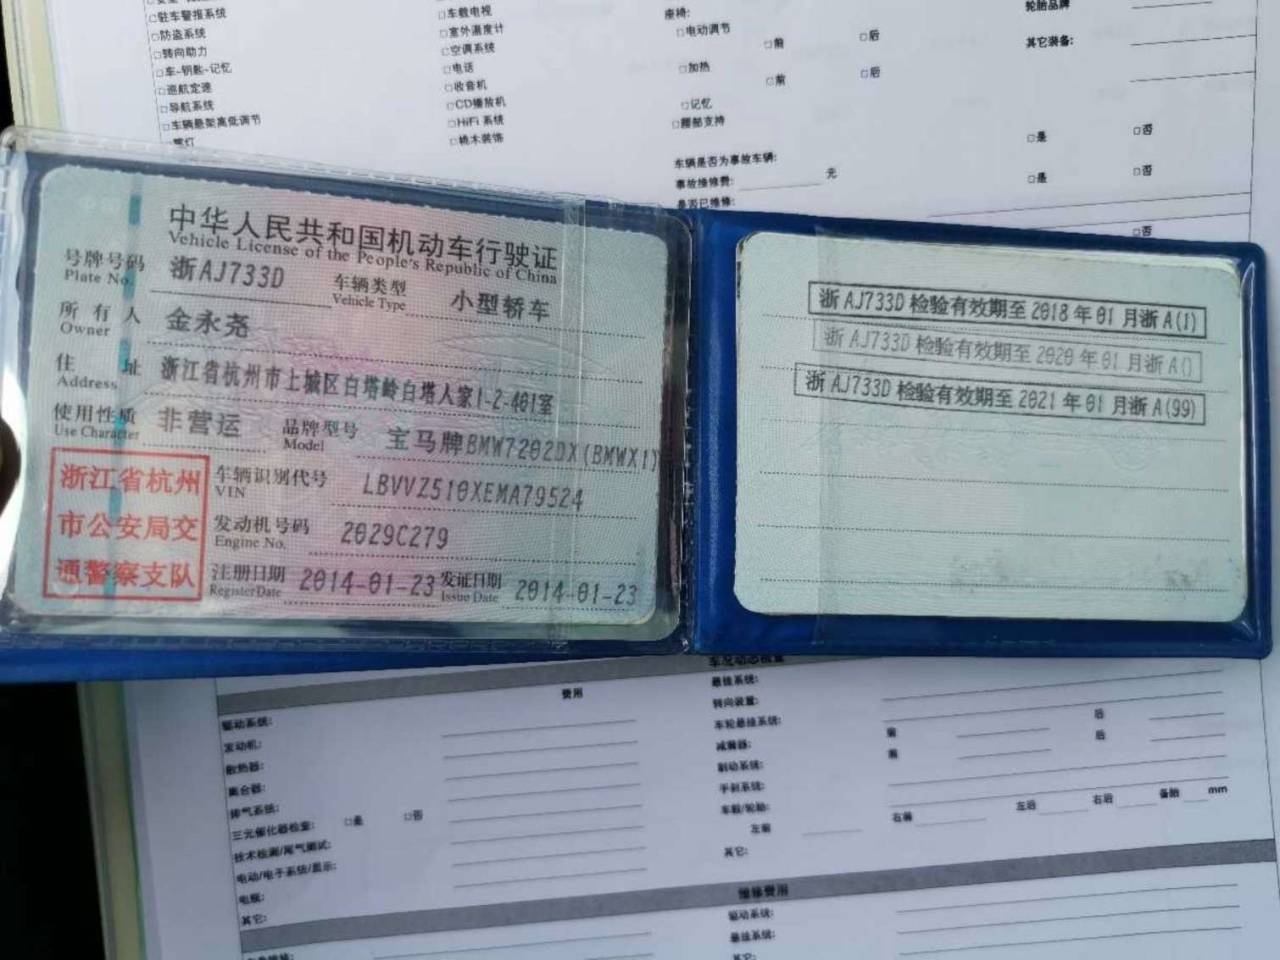 □驻车警报系统
□防盗系统
□转向助力
□车-钥匙-记忆
□巡航定速
□导航系统
□车辆悬架高低调节
□车载电视
□室外温度计
□空调系统
□电话
□收音机
□CD播放机
□HiFi 系统
□桃木装饰
座椅:
□电动调节
□前 □后
□加热
□前 □后
□记忆
□腰部支持
车辆是否为事故车辆: □是 □否
事故维修费: 元
是否已维修: □是 □否
□否
轮胎品牌
其它装备:
中华人民共和国机动车行驶证
Vehicle License of the People's Republic of China
号牌号码 浙AJ733D 车辆类型 小型轿车
Plate No. Vehicle Type
所有人 金永尧
Owner
住址 浙江省杭州市上城区白塔岭白塔人家1-2-401室
Address
使用性质 非营运 品牌型号 宝马牌BMW7202DX(BMWX1)
Use Character Model
浙江省杭州
市公安局交
通警察支队
车辆识别代号 LBVVZ510XEMA79524
VIN
发动机号码 2029C279
Engine No.
注册日期 2014-01-23 发证日期 2014-01-23
Register Date Issue Date
浙AJ733D 检验有效期至 2018 年 01 月浙 A(1)
浙 AJ733D 检验有效期至 2020 年 01 月浙 A()
浙 AJ733D 检验有效期至 2021 年 01 月浙 A(99)
费用
驱动系统:
发动机:
散热器:
离合器:
排气系统:
三元催化器检查: □是 □否
技术检测/尾气测试:
电动/电子系统/显示:
电瓶:
其它:
车况动态检查
悬挂系统:
转向装置:
车轮悬挂系统: 前 后
减震器: 前 后
制动系统:
手刹系统:
车毂/轮胎:
左前 右前 左后 右后 备胎 mm
其它:
维修费用
驱动系统:
悬挂系统:
其它: